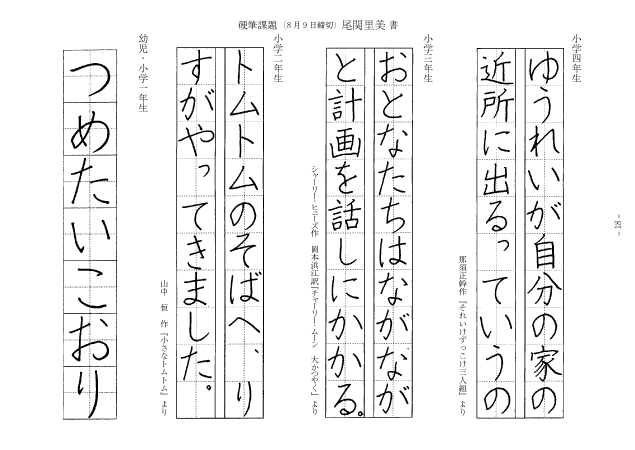 硬筆課題（8月9日締切）尾関里美 書
小学四年生
ゆうれいが自分の家の
近所に出るっていうの
那須正幹作『それいけずっこけ三人組』より
小学三年生
おとなたちはながなが
と計画を話しにかかる。
シャーリー・ヒューズ作 岡本浜江訳『チャーリー・ムーン 大かつやく』より
小学二年生
トムトムのそばへ、り
すがやってきました。
山中 恒 作『小さなトムトム』より
幼児・小学一年生
つめたいこおり
- 18 -